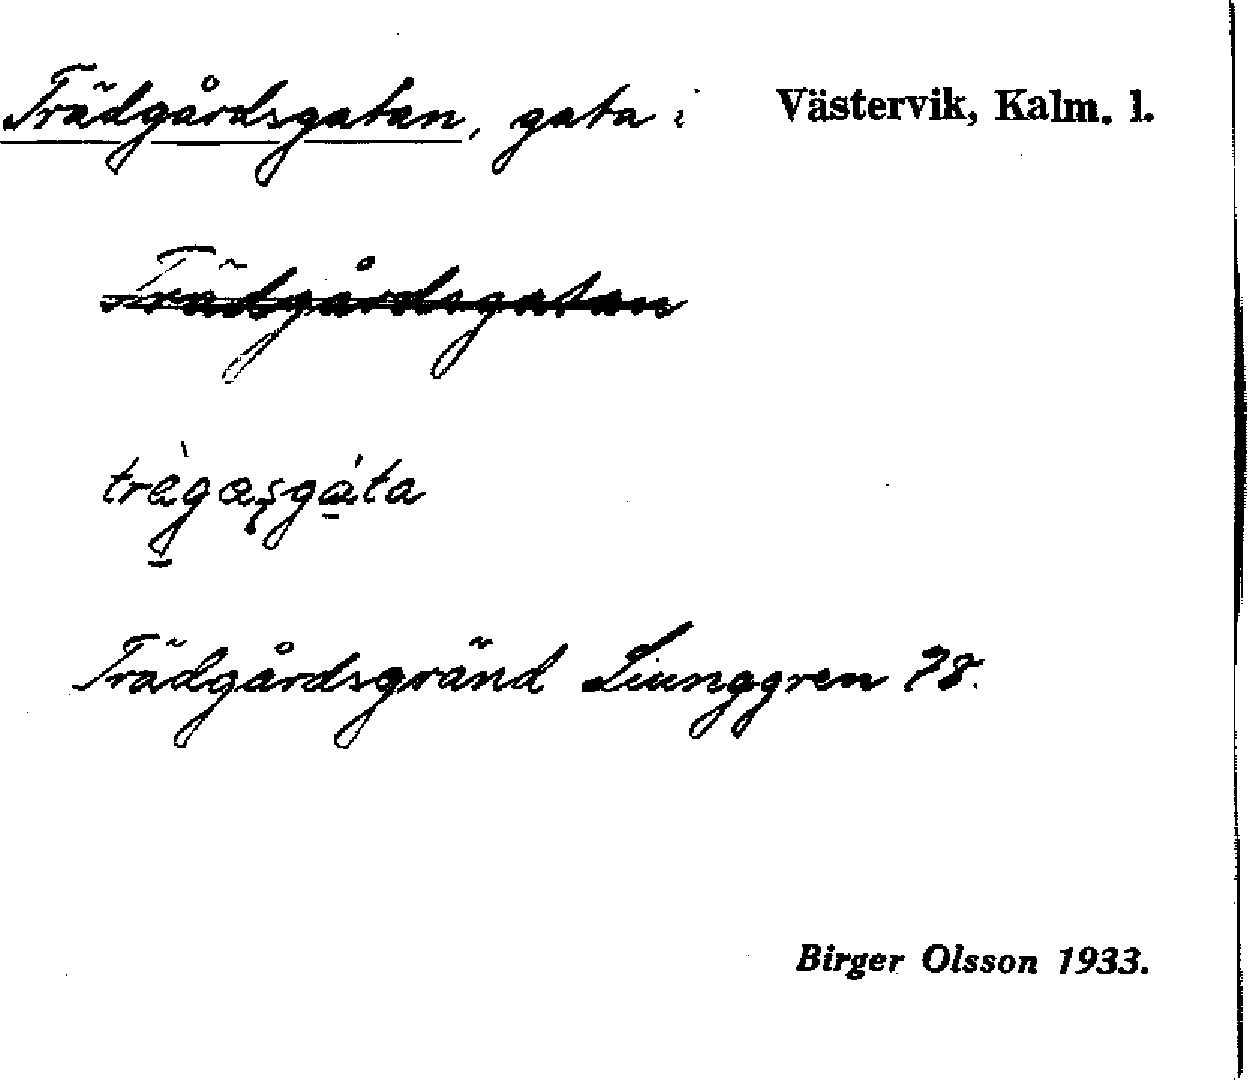 Trädgårdsgatan, gata i Västervik, Kalm. l.
Trädgårdsgatan
trägasgata
Trädgårdsgränd Liunggren 78.
Birger Olsson 1933.